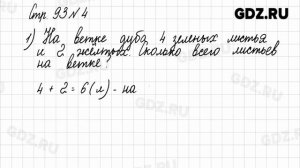 GDZ.RU
Стр. 93 № 4
1) На ветке дуба 4 зеленых листья
и 2 желтых. Сколько всего листьев
на ветке?
4 + 2 = 6 (л) - на